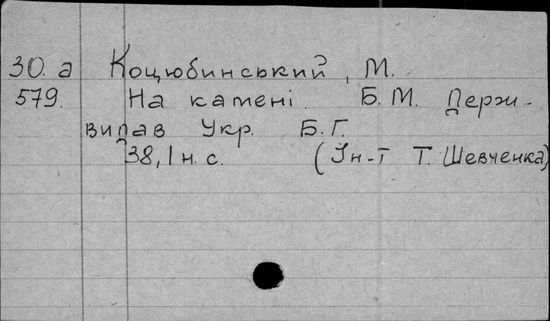 30. а Коцюбинський, М.
579. На камені. Б. М. Держ-
видав Укр. Б. Г.
38, 1 н. с. (Ін-т Т. Шевченка)